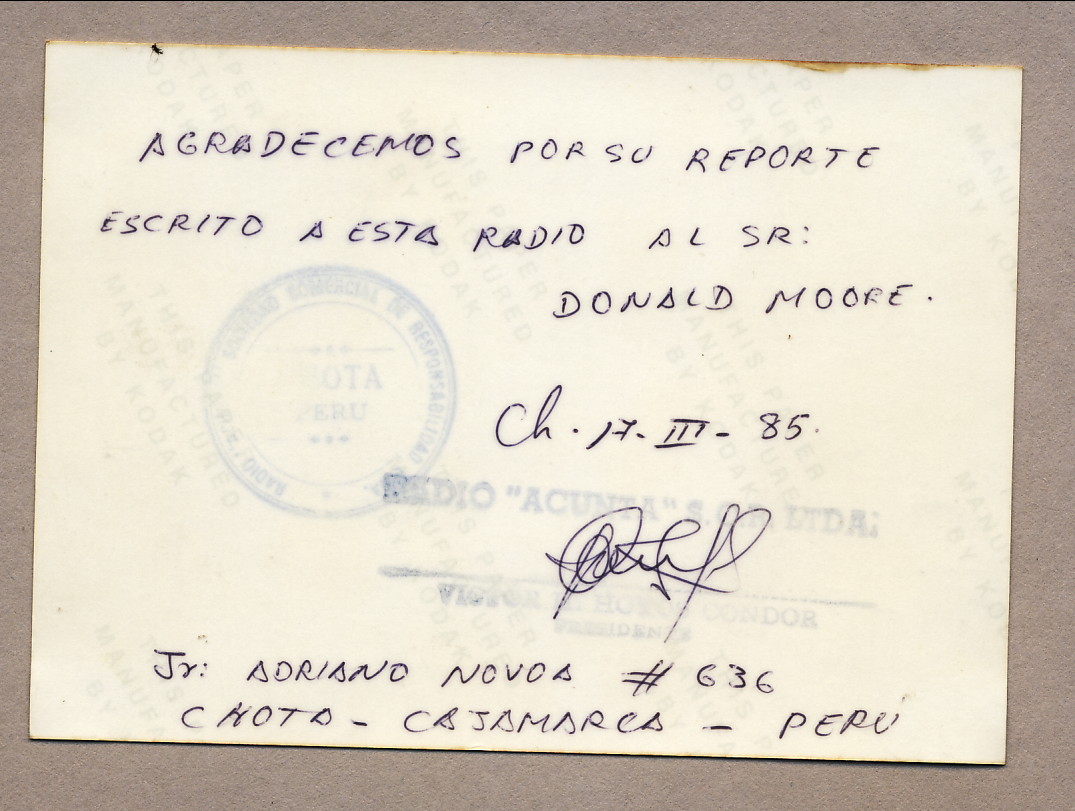 AGRADECEMOS POR SU REPORTE
ESCRITO A ESTA RADIO AL SR:
DONALD MOORE.
SOCIEDAD COMERCIAL DE RESPONSABILIDAD
RADIO
CHOTA
PERU
Ch. 17-III-85.
RADIO "ACUNTA" S.C.R. LTDA.
VICTOR HOYOS CONDOR
PRESIDENTE
Jr: ADRIANO NOVOA # 636
CHOTA - CAJAMARCA - PERU
THIS PAPER
MANUFACTURED
BY KODAK